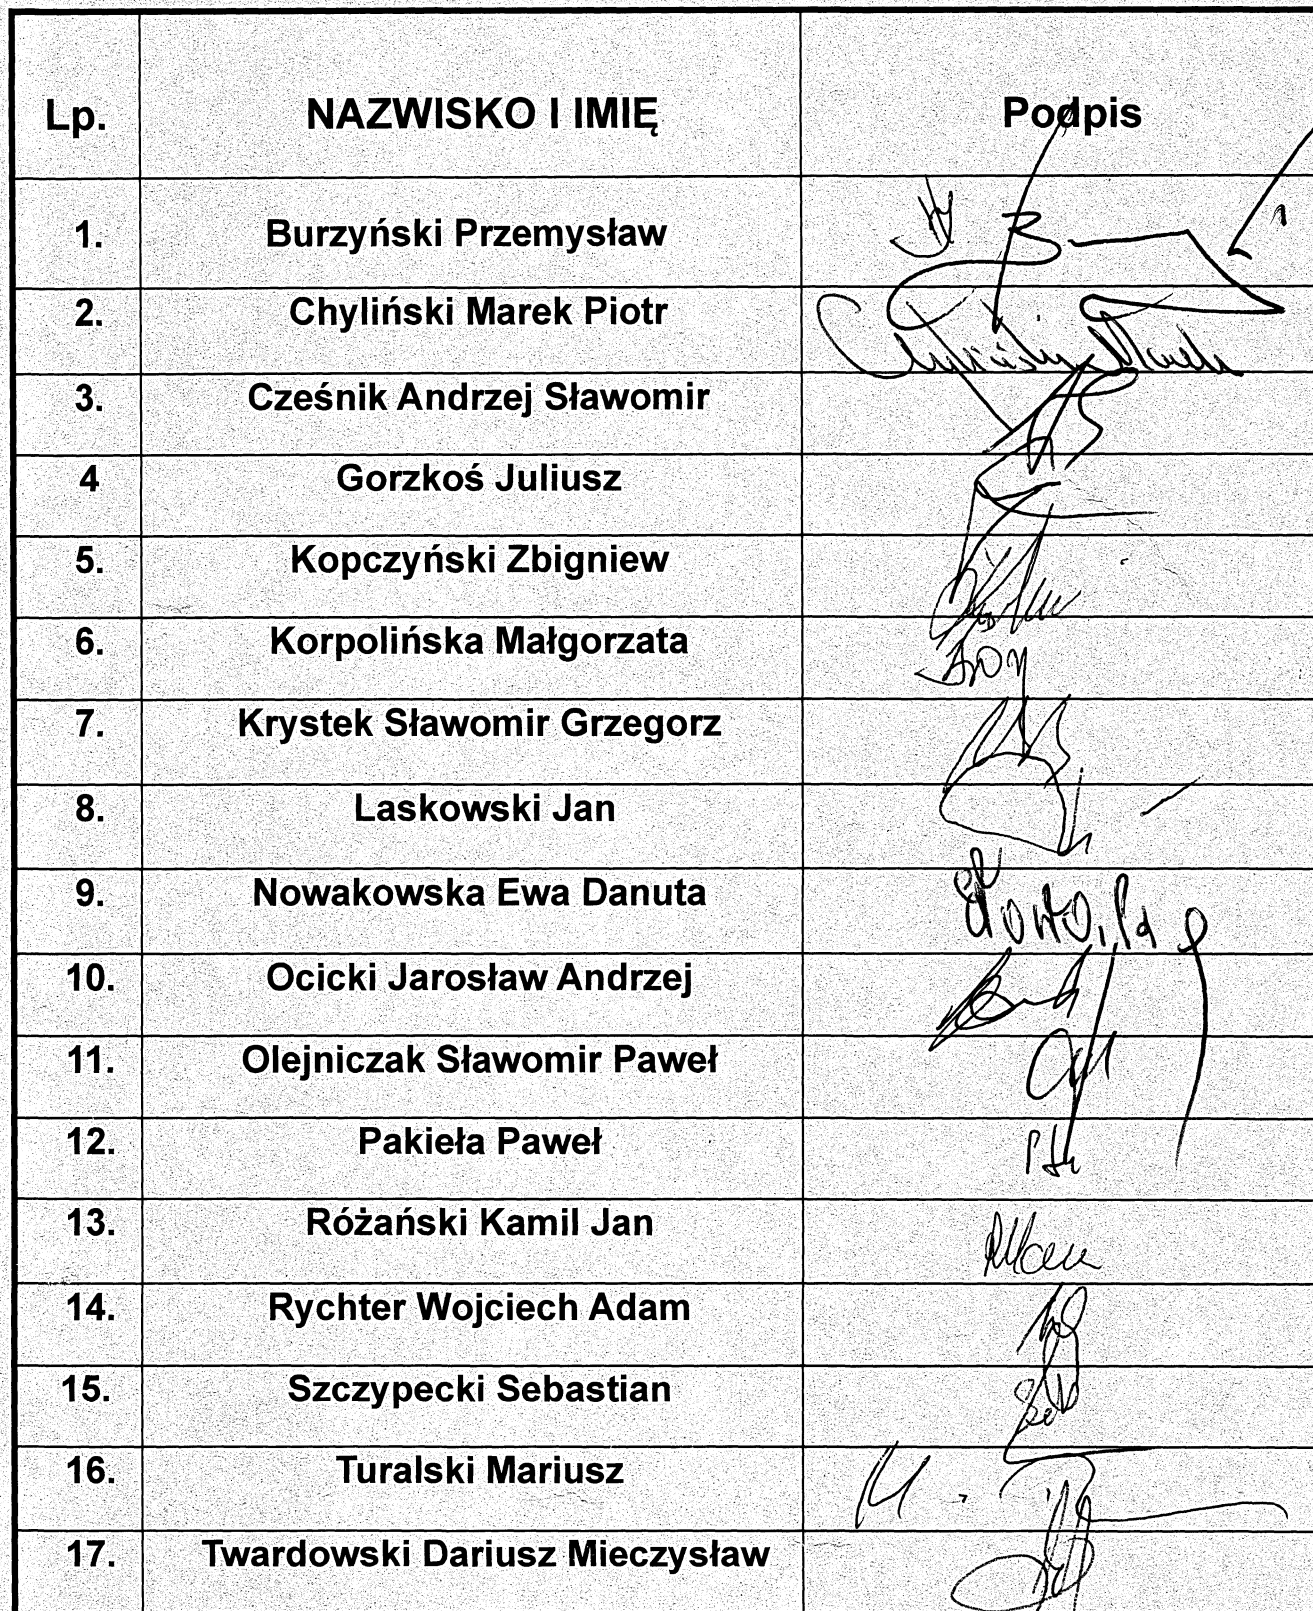 Lp. NAZWISKO I IMIĘ Podpis
1. Burzyński Przemysław
2. Chyliński Marek Piotr Chyliński Marek
3. Cześnik Andrzej Sławomir
4 Gorzkoś Juliusz
5. Kopczyński Zbigniew
6. Korpolińska Małgorzata
7. Krystek Sławomir Grzegorz
8. Laskowski Jan
9. Nowakowska Ewa Danuta
10. Ocicki Jarosław Andrzej
11. Olejniczak Sławomir Paweł
12. Pakieła Paweł
13. Różański Kamil Jan
14. Rychter Wojciech Adam
15. Szczypecki Sebastian
16. Turalski Mariusz
17. Twardowski Dariusz Mieczysław